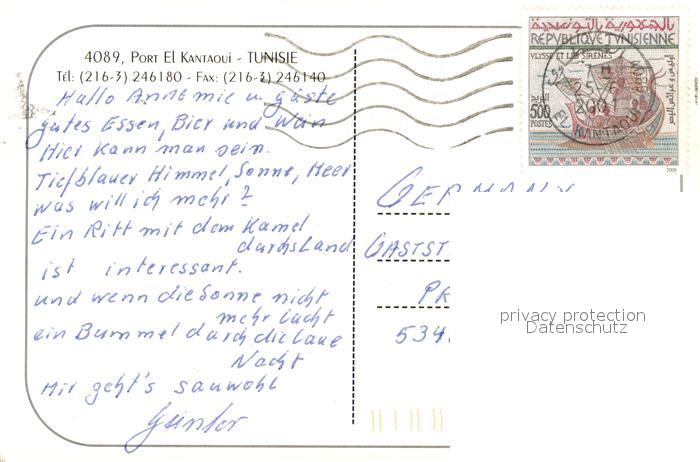 4089, PORT EL KANTAOUI - TUNISIE
TÉL: (216-3) 246180 - FAX: (216-3) 246140
Hallo Annemie u. Gäste
gutes Essen, Bier und Wein
Hier kann man sein.
Tiefblauer Himmel, Sonne, Meer
was will ich mehr?
Ein Ritt mit dem Kamel
durchs Land
ist interessant.
und wenn die Sonne nicht
mehr lacht
ein Bummel durch die laue
Nacht
Mir geht's sauwohl
Günter
الجمهورية التونسية
REPUBLIQUE TUNISIENNE
ULYSSE ET LES SIRENES
500
POSTES
2000
25
2001
EL KANTAOUI
GERMANY
GASTST
PR
534
privacy protection
Datenschutz